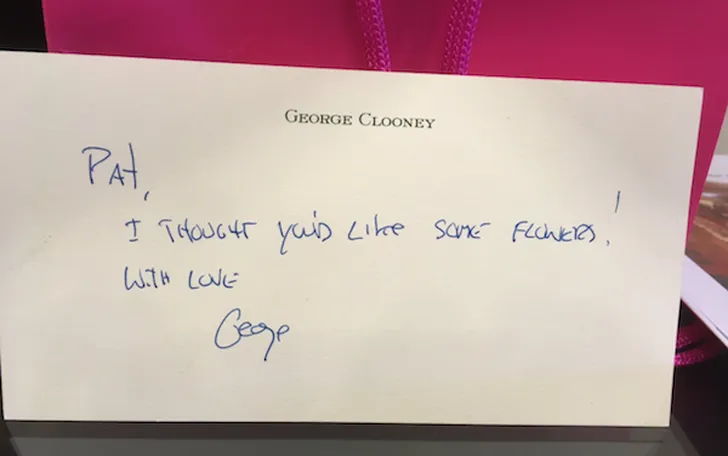 GEORGE CLOONEY
PAT,
I THOUGHT YOU'D LIKE SOME FLOWERS!
WITH LOVE
George